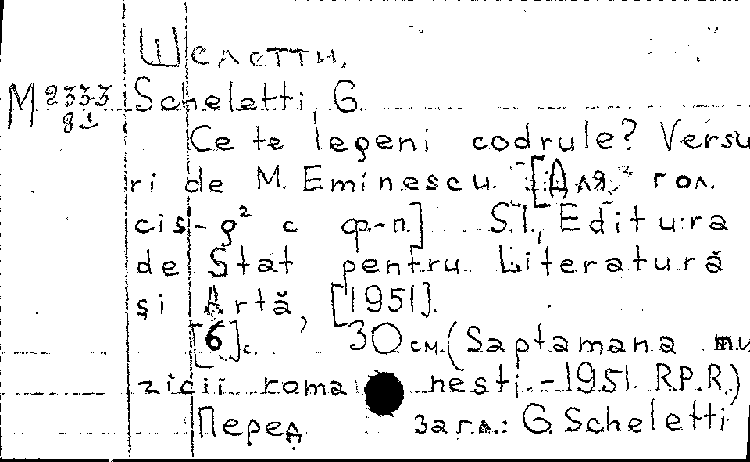 Шелетти,
М 2333 Scheletti, G.
81
Ce te legeni codrule? Versu
ri de M. Eminescu. [Для гол.
cis-g² с ф-п.] S.l., Editura
de Stat pentru Literatură
şi Artă, [1951].
[6] с. 30 см. (Saptamana mu
zicii romanesti.-1951. R.P.R.)
Перед загл.: G. Scheletti